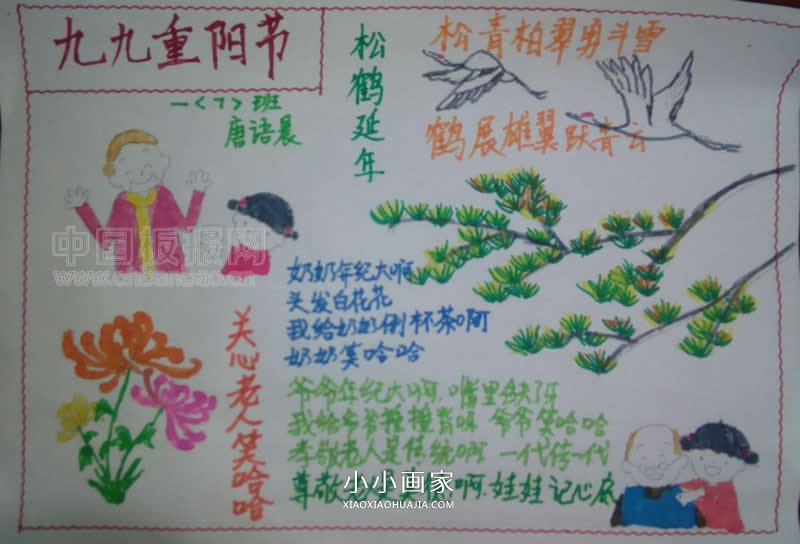 九九重阳节
一<7>班
唐语晨
松鹤延年
松青柏翠勇斗雪
鹤展雄翼跃青云
中国板报网
www.cnbanbao.cn
奶奶年纪大啊
头发白花花
我给奶奶倒杯茶啊
奶奶笑哈哈
关心老人笑哈哈
爷爷年纪大啊.嘴里缺了牙
我给爷爷捶捶背啊 爷爷笑哈哈
孝敬老人是传统啊 一代传一代
尊敬 啊.娃娃记心底
小小画家
XIAOXIAOHUAJIA.COM